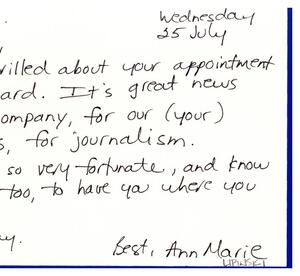 Wednesday
25 July
,
rilled about your appointment
ard. It's great news
ompany, for our (your)
s, for journalism.
so very fortunate, and know
too, to have ya where you
y.
Best, Ann Marie
LIPINSKI